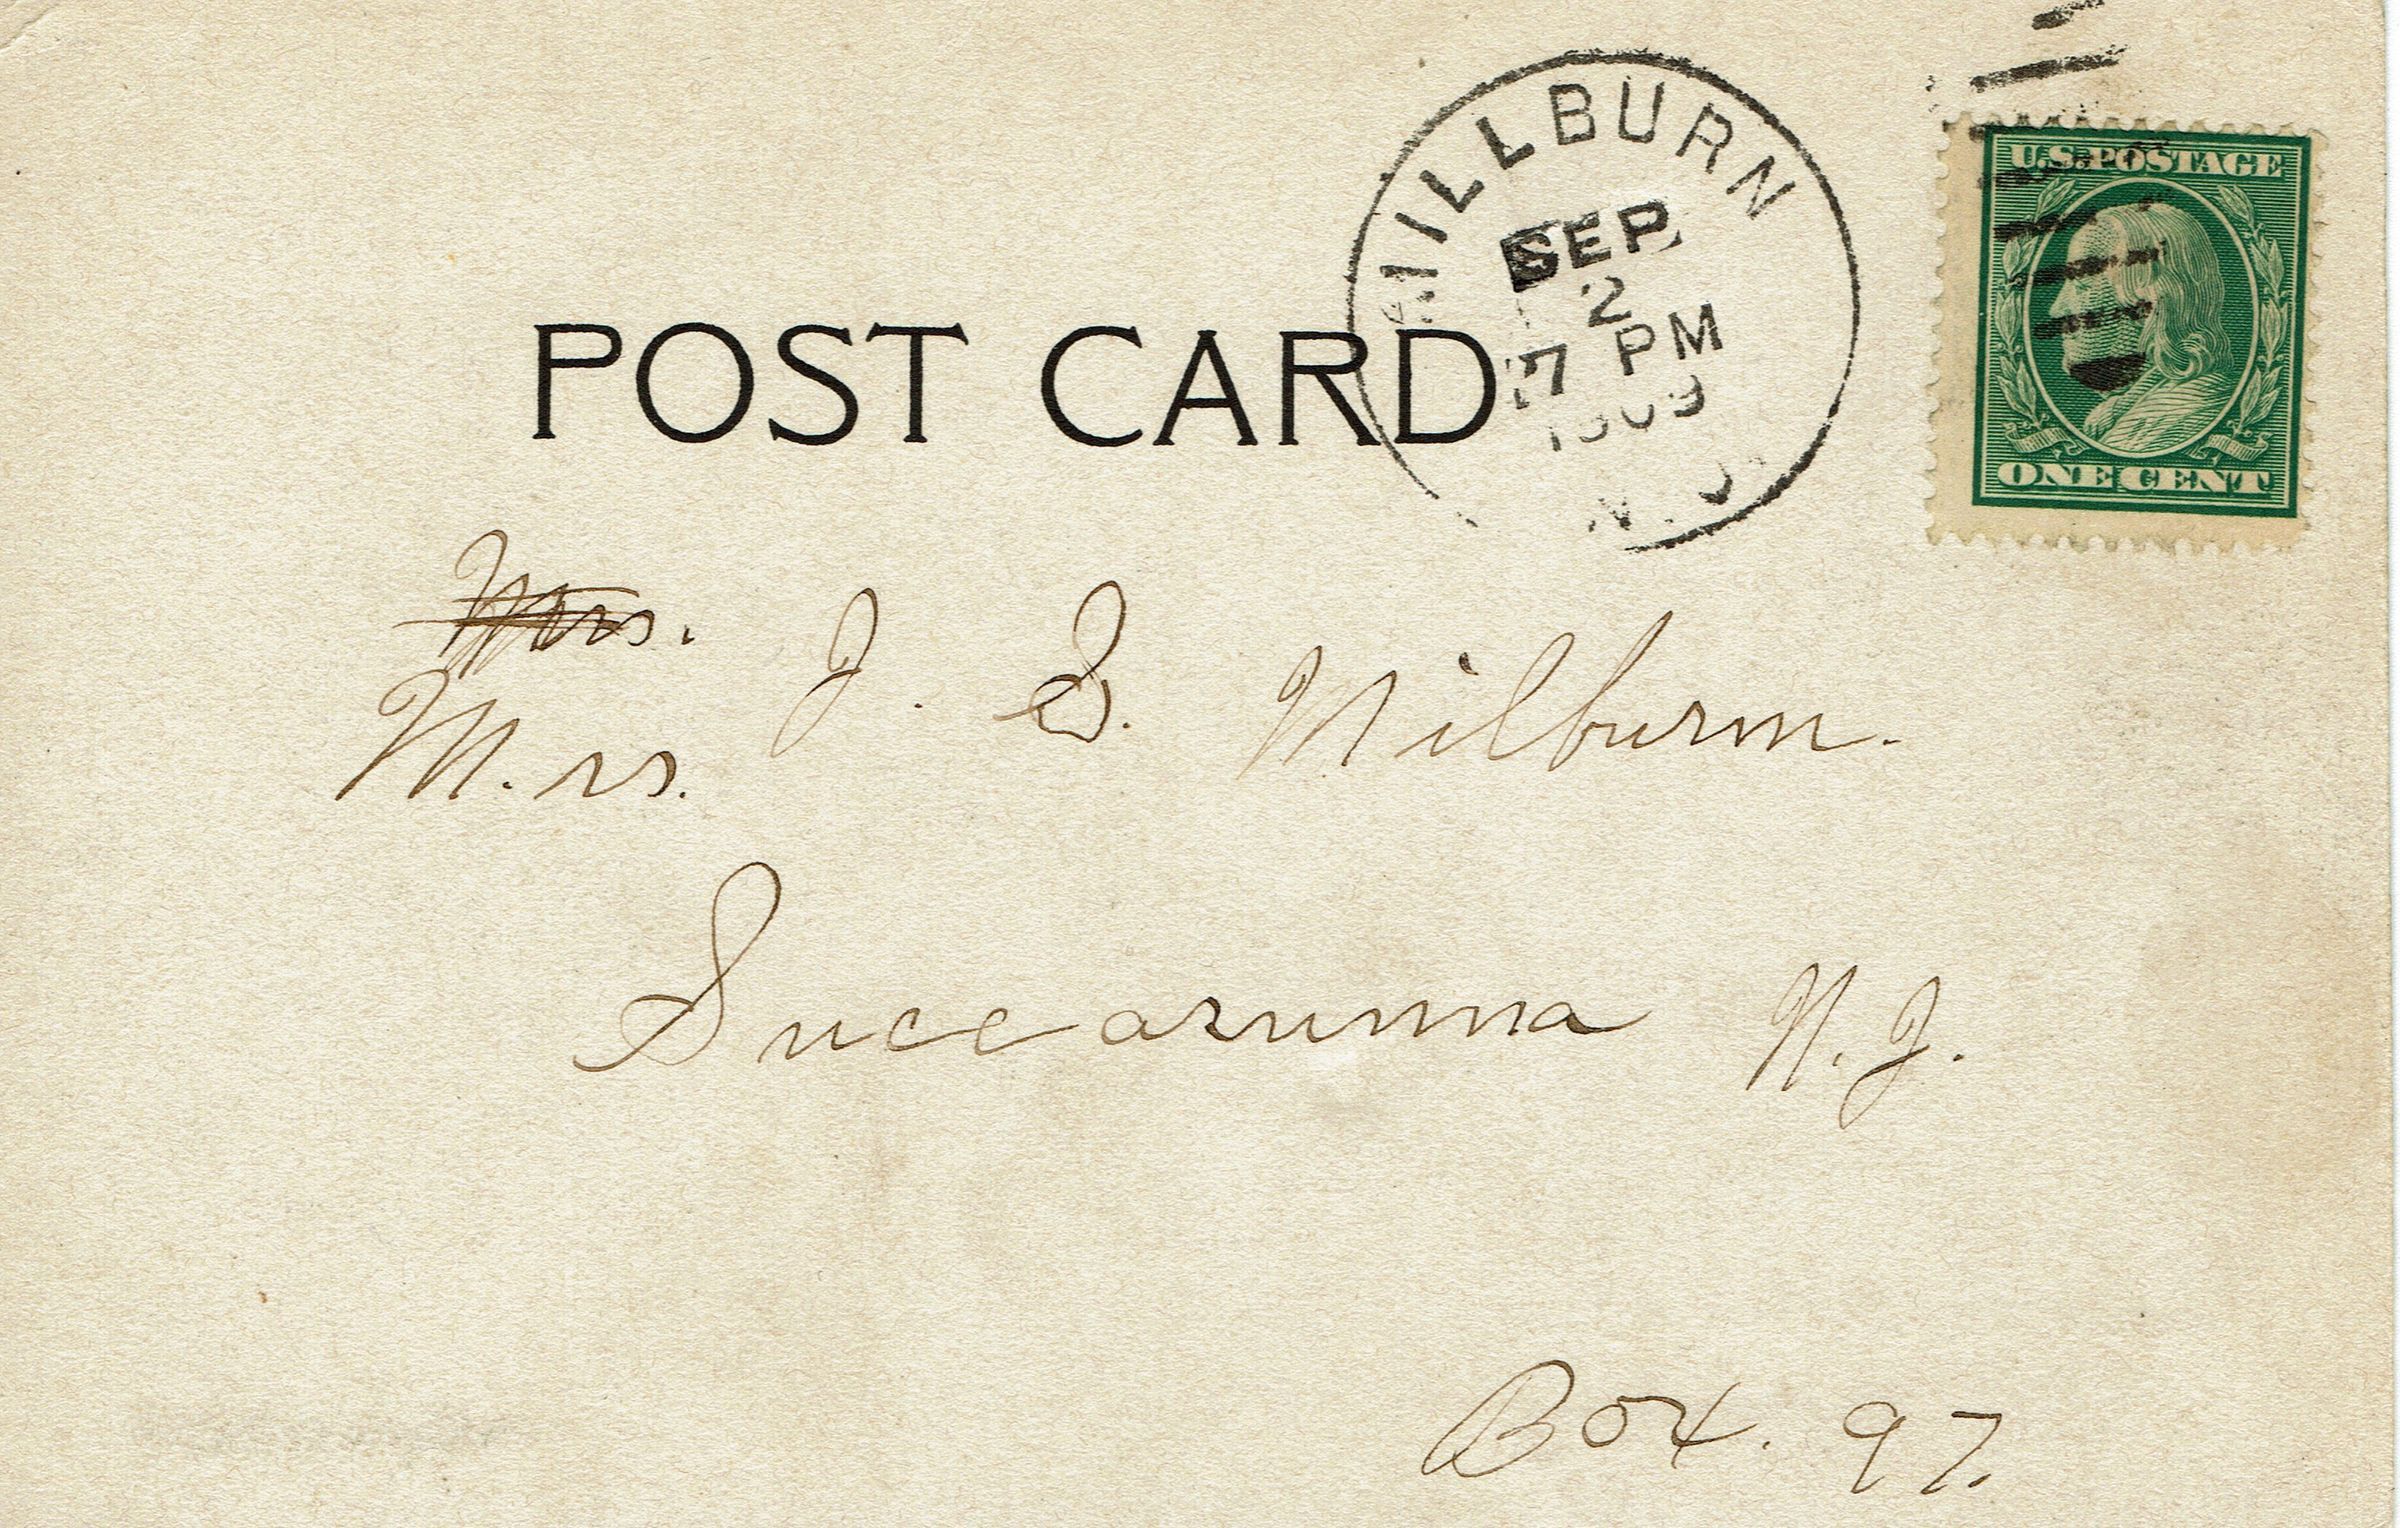 POST CARD
MILLBURN
SEP
2
7 PM
1909
N.J.
U.S. POSTAGE
ONE CENT
Mrs.
Mrs. J. S. Wilburn.
Succasunna N.J.
Box. 97.